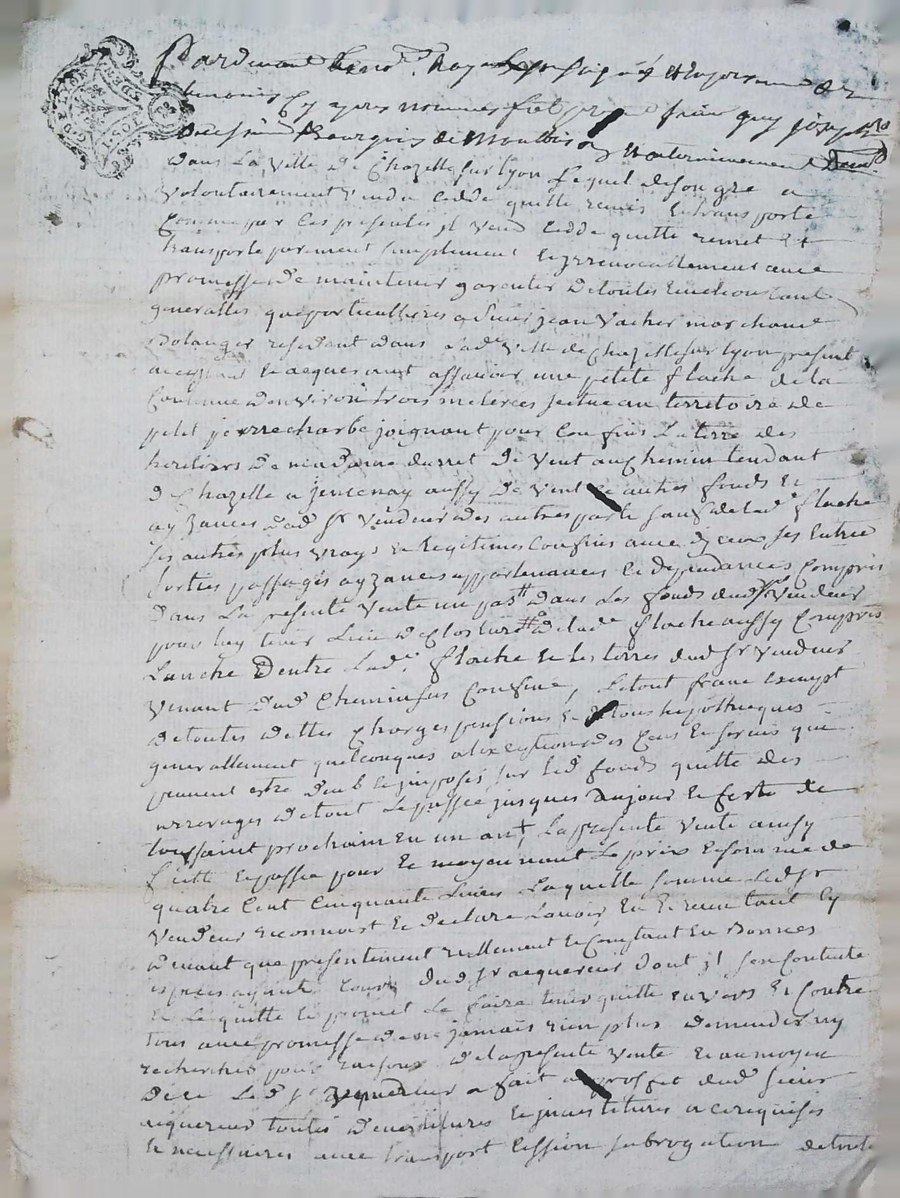 Pardevant le no.re Royal soussigné et en presence des
temoins cy apres nommés fut present sieur guy joseph
Bourgois de Montbrison et
dans la ville de Chazelle sur lyon lequel de son gre a
volontairement vendu cedde quitte remis et transporte
Comme par ces presentes il vend cedde quitte remet et
transporte purement simplement et irrevocablement avec
promesse de maintenir garentir de toutes evictions tant
generalles que particullieres a sieur jean vacher marchand
Bolanger residant dans lad.e ville de chazelle sur lyon present
acceptant et acquerant assavoir une petite flache de la
Contenue d'environ trois meterees scitue au territoire de
petit joignant pour confins la terre des
heritiers de madame durret de vent au chemin tendant
de Chazelle a aussy de vent les autres fonds et
ayzances dud sr vendeur des autres parts sauf de lad.e flache
ses autres plus vrays et legitimes confins avec iceux ses entree
sorties passages ayzances appartenances et dependances compris
dans la presente vente un pas dans les fonds dud sr vendeur
pour luy tenir lieu de closture de lad.e flache aussy compris
lanche d'entre lad.e flache et les terres dud sr vendeur
venant dud chemin sus confiné, le tout franc exempt
de toutes dettes charges pensions et de tous hypotheques
generallement quelconques a l'exeption des cens et servis qui
peuvent estre deub et imposés sur led fonds quitte des
arrerages de tout le passée jusques aujour et feste de
toussaint prochain en un an, la presente vente aussy
faitte et passée pour et moyennant le prix et somme de
quatre cent cinquante livres laquelle somme led sr
vendeur reconnoist et declare l'avoir eu et receu tant cy
devant que presentement reellement et comptant en bonnes
especes ayants cours dud sr acquereur dont il s'en contente
et le quitte et promet le faire tenir quitte envers et contre
tous avec promesse de ne jamais rien plus demander ny
rechercher pour raison de la presente vente et au moyen
de ce led sr vendeur a fait au proffit dud sieur
acquereur toutes devestitures et investitures a ce requises
et necessaires avec transport cession subrogation de toute